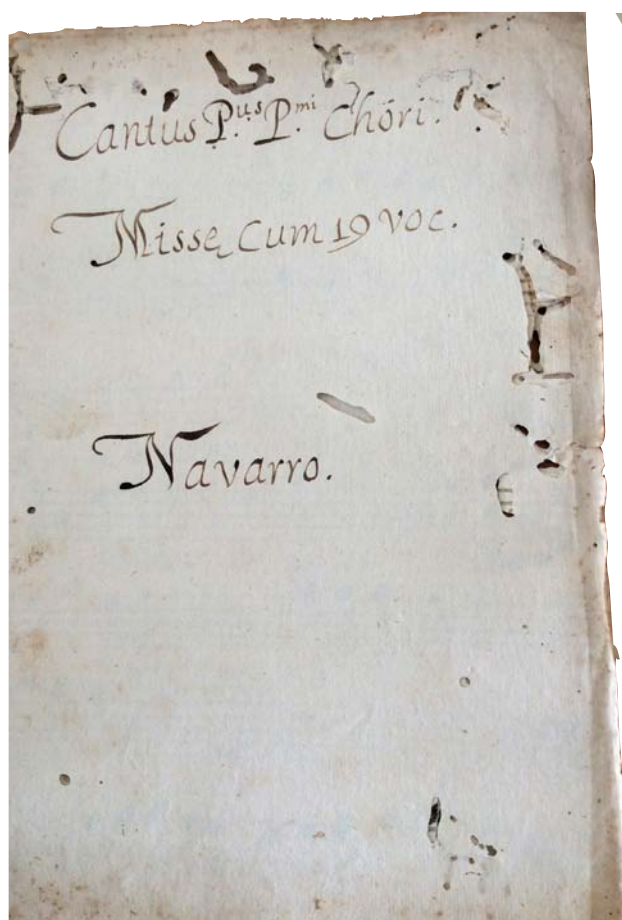 Cantus P.us P.mi Chori.
Missę cum 19 voc.
Navarro.